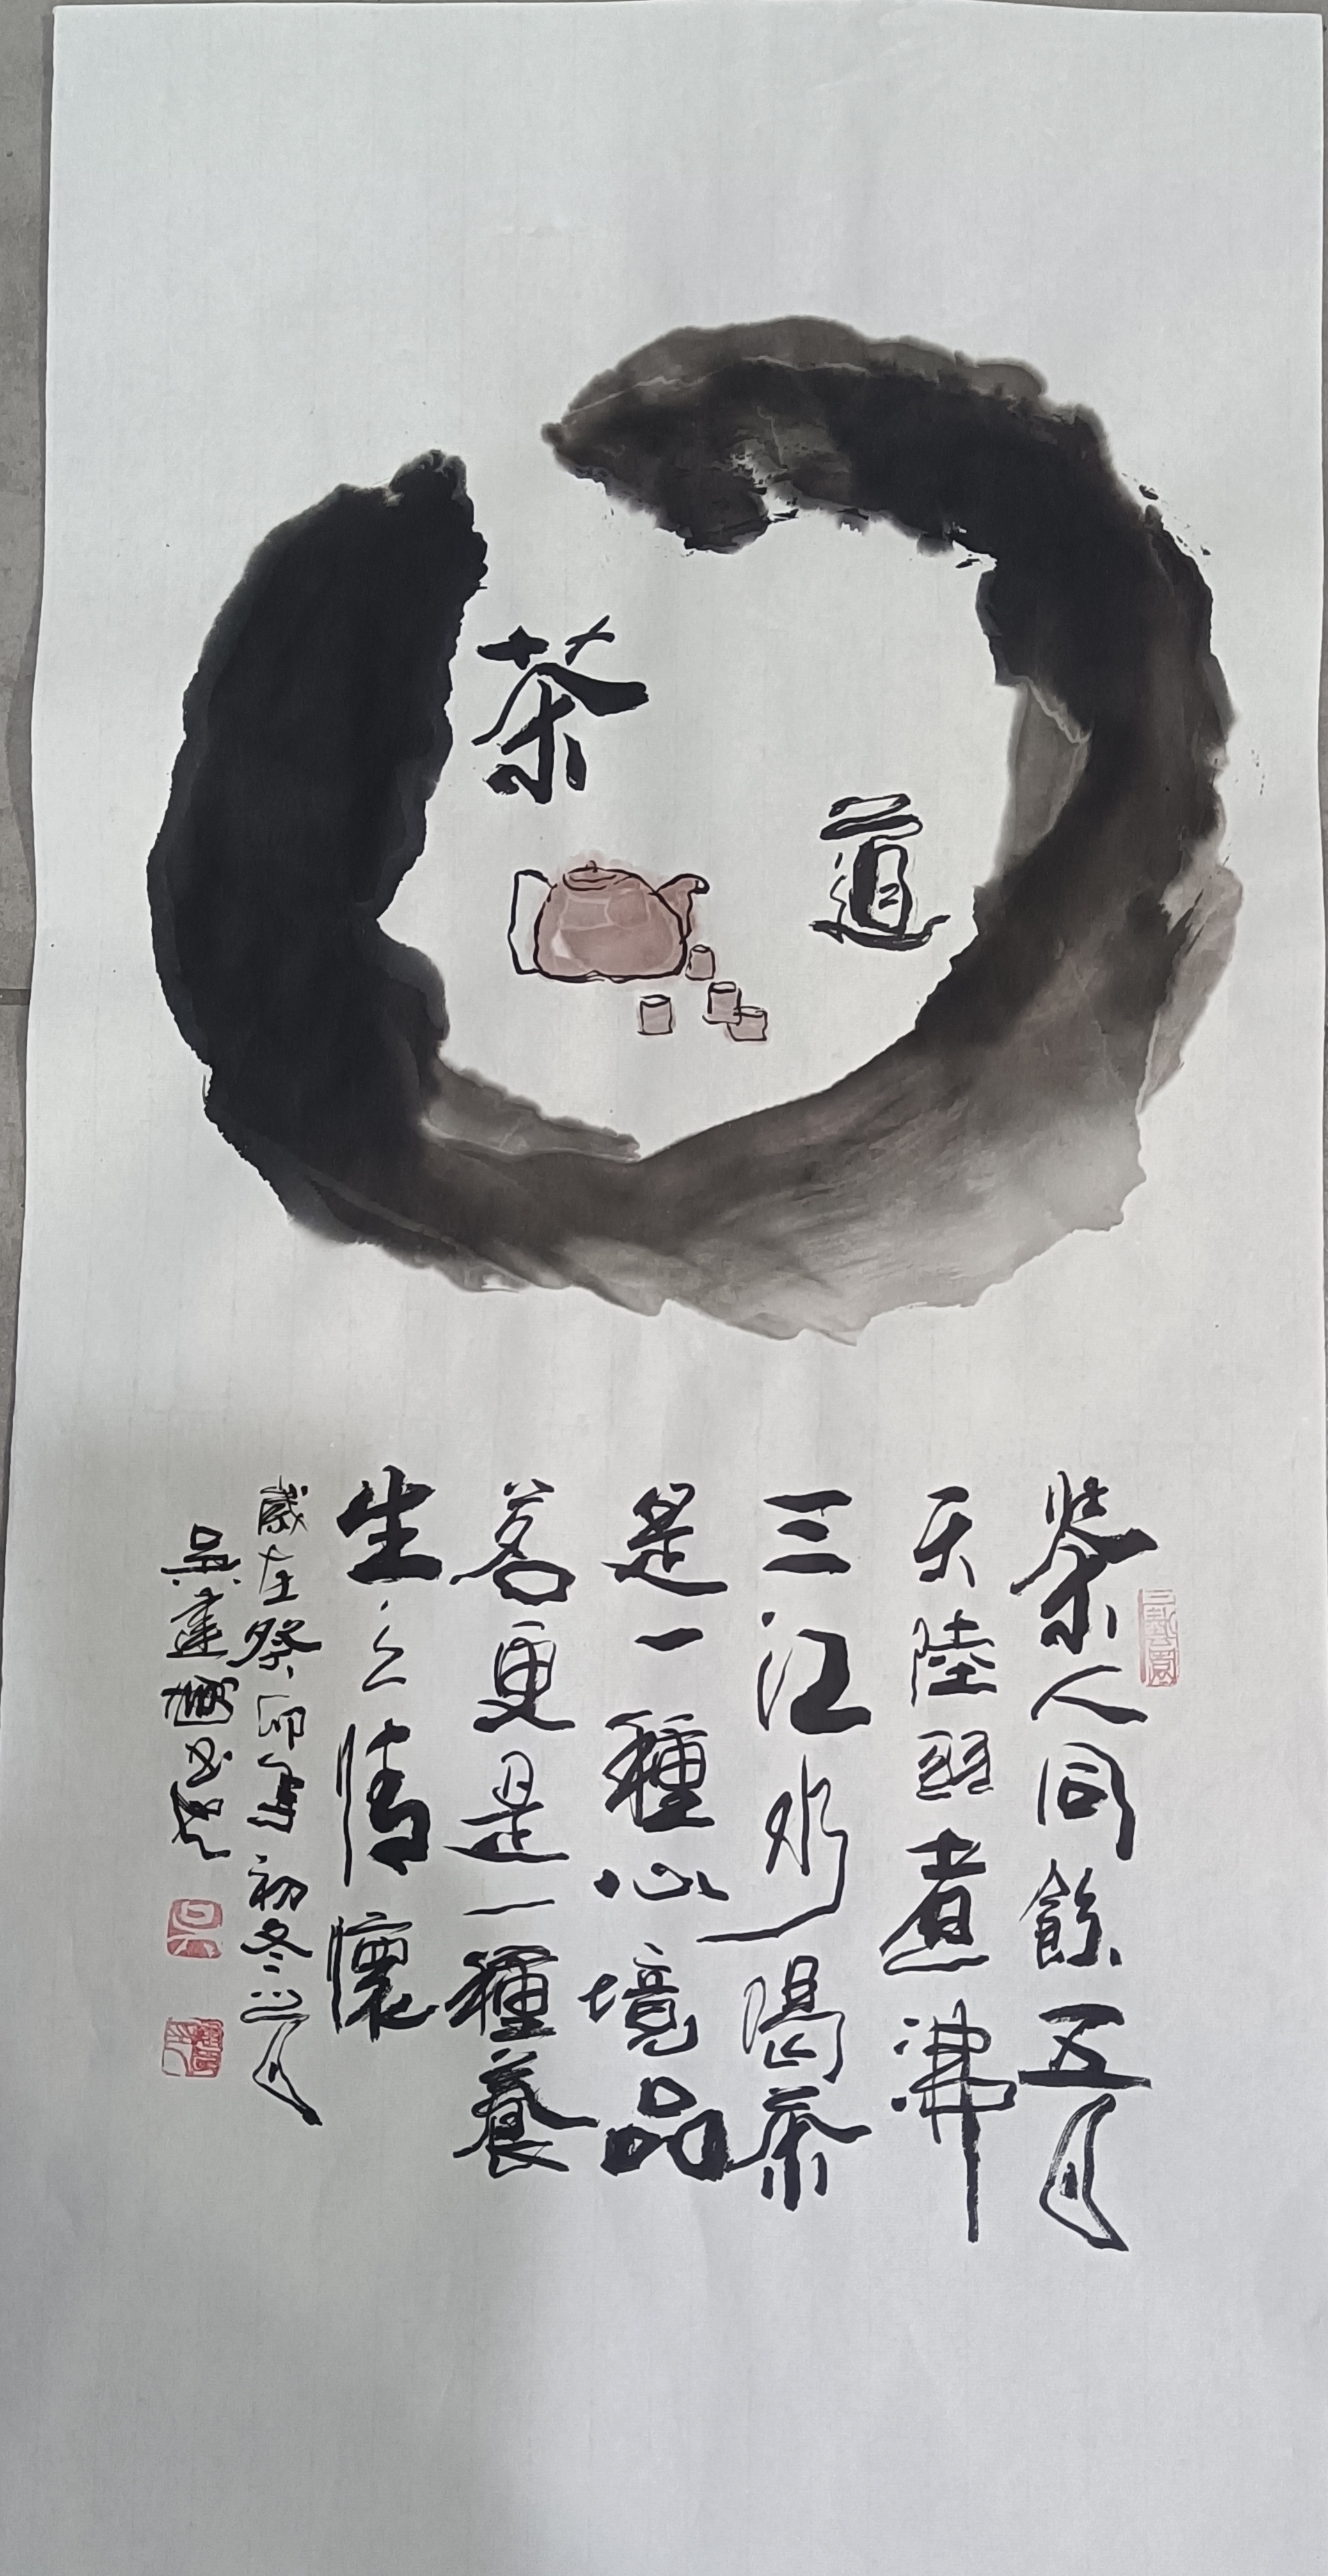 茶
道
柴人同餘五月
天陸羽煮沸
三江水喝茶
是一種心境品
茗更是一種養
生之情懷
歲在癸卯年初冬之月
吳建